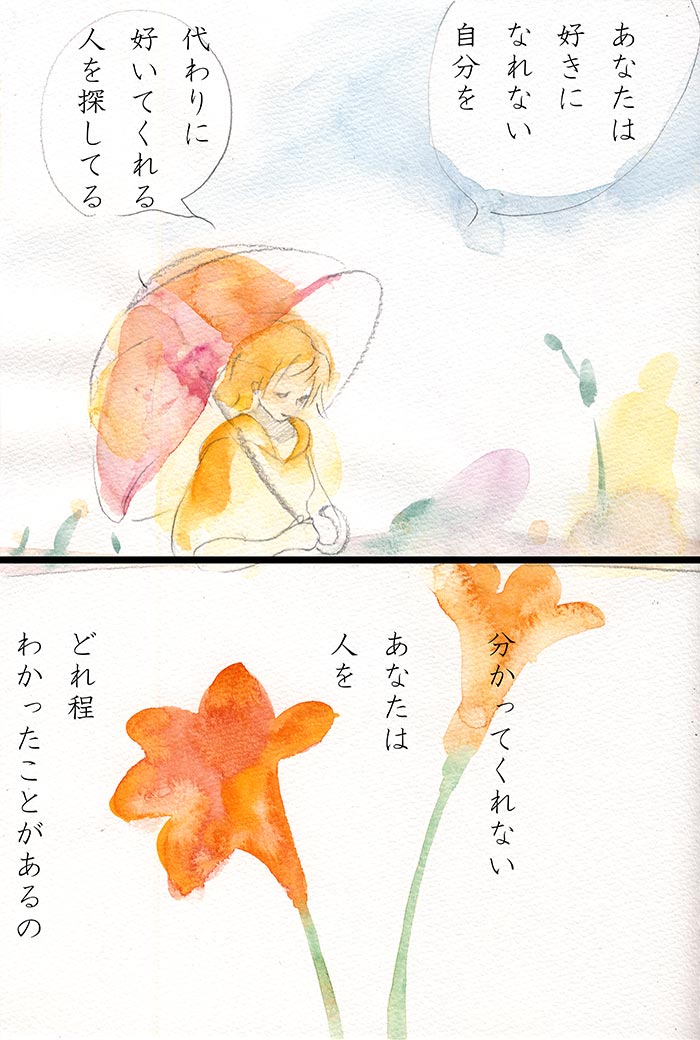 あなたは
好きに
なれない
自分を
代わりに
好いてくれる
人を探してる
分かってくれない
あなたは
人を
どれ程
わかったことがあるの